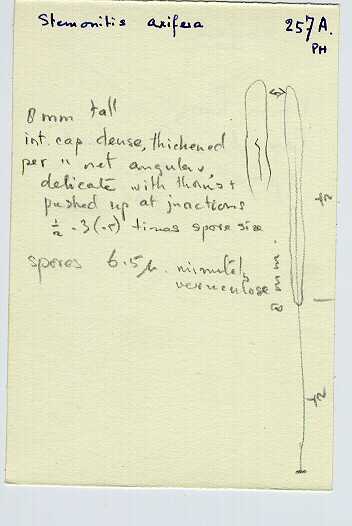 Stemonitis axifera
257A.
PH
8mm tall
int. cap. dense, thickened
per " net angular,
delicate with thorns +
pushed up at junctions
½ - 3(-5) times spore size
spores 6.5μ. minutely
verruculose
8 mm.
½
½